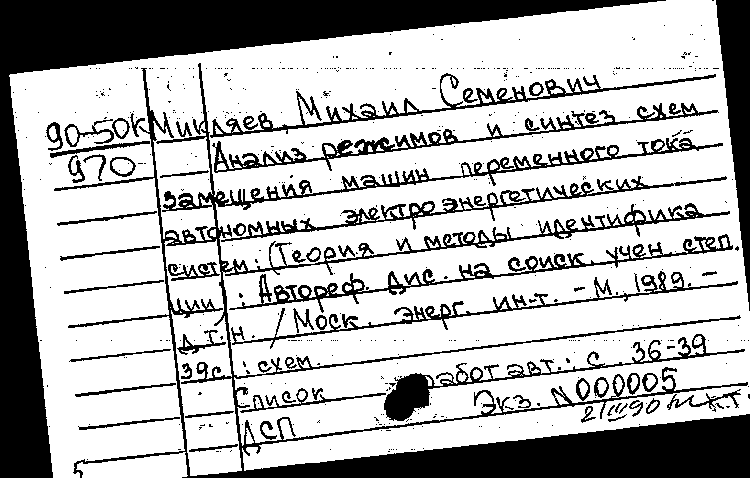 90-50К Микляев, Михаил Семенович
970 Анализ режимов и синтез схем
замещения машин переменного тока
автономных электроэнергетических
систем: (Теория и методы идентифика
ции): Автореф. дис. на соиск. учен. степ.
д.т.н. / Моск. энерг. ин-т. - М., 1989. -
39с.: схем.
Список работ авт.: с 36-39
ДСП Экз. N000005
21/III90 К.Т.
5